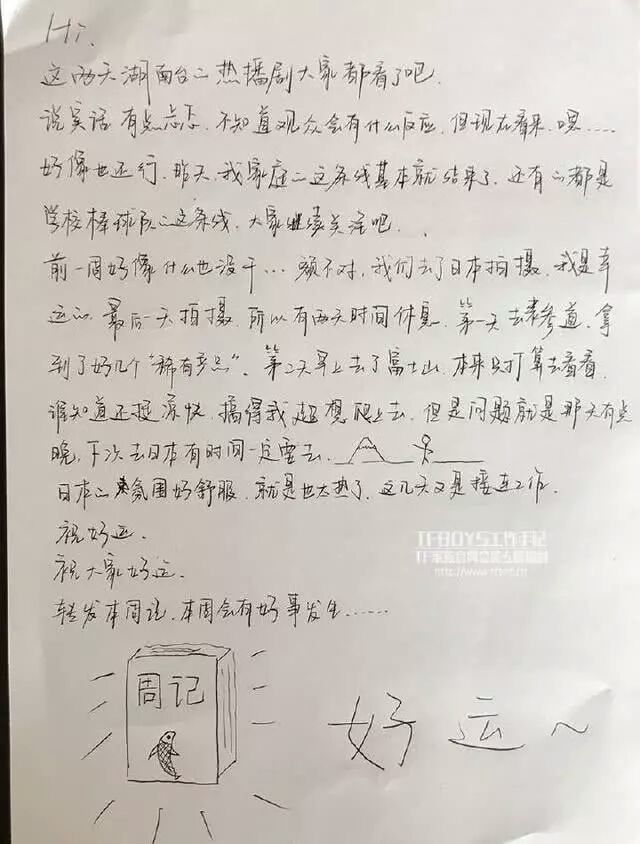 Hi.
这两天湖南台の热播剧大家都看了吧.
说实话 有点忐忑. 不知道观众会有什么反应. 但现在看来. 嗯……
好像也还行. 昨天. 我家庭の这条线基本就结束了. 还有の都是
学校棒球队の这条线. 大家继续关注吧.
前一周好像什么也没干… 额不对, 我们去了日本拍摄. 我是幸
运の. 最后一天拍摄 所以有两天时间休息. 第一天去表参道. 拿
到了好几个“稀有产品”. 第2天早上去了富士山. 本来只打算去看看.
谁知道还挺凉快. 搞得我超想爬上去. 但是问题就是那天有点
晚. 下次去日本有时间一定要去.
日本の氛围好舒服. 就是也太热了. 这几天又是接连工作.
祝好运.
祝大家好运.
转发本周记. 本周会有好事发生……
TFBOYS工作手记
http://www.
周记
好运~